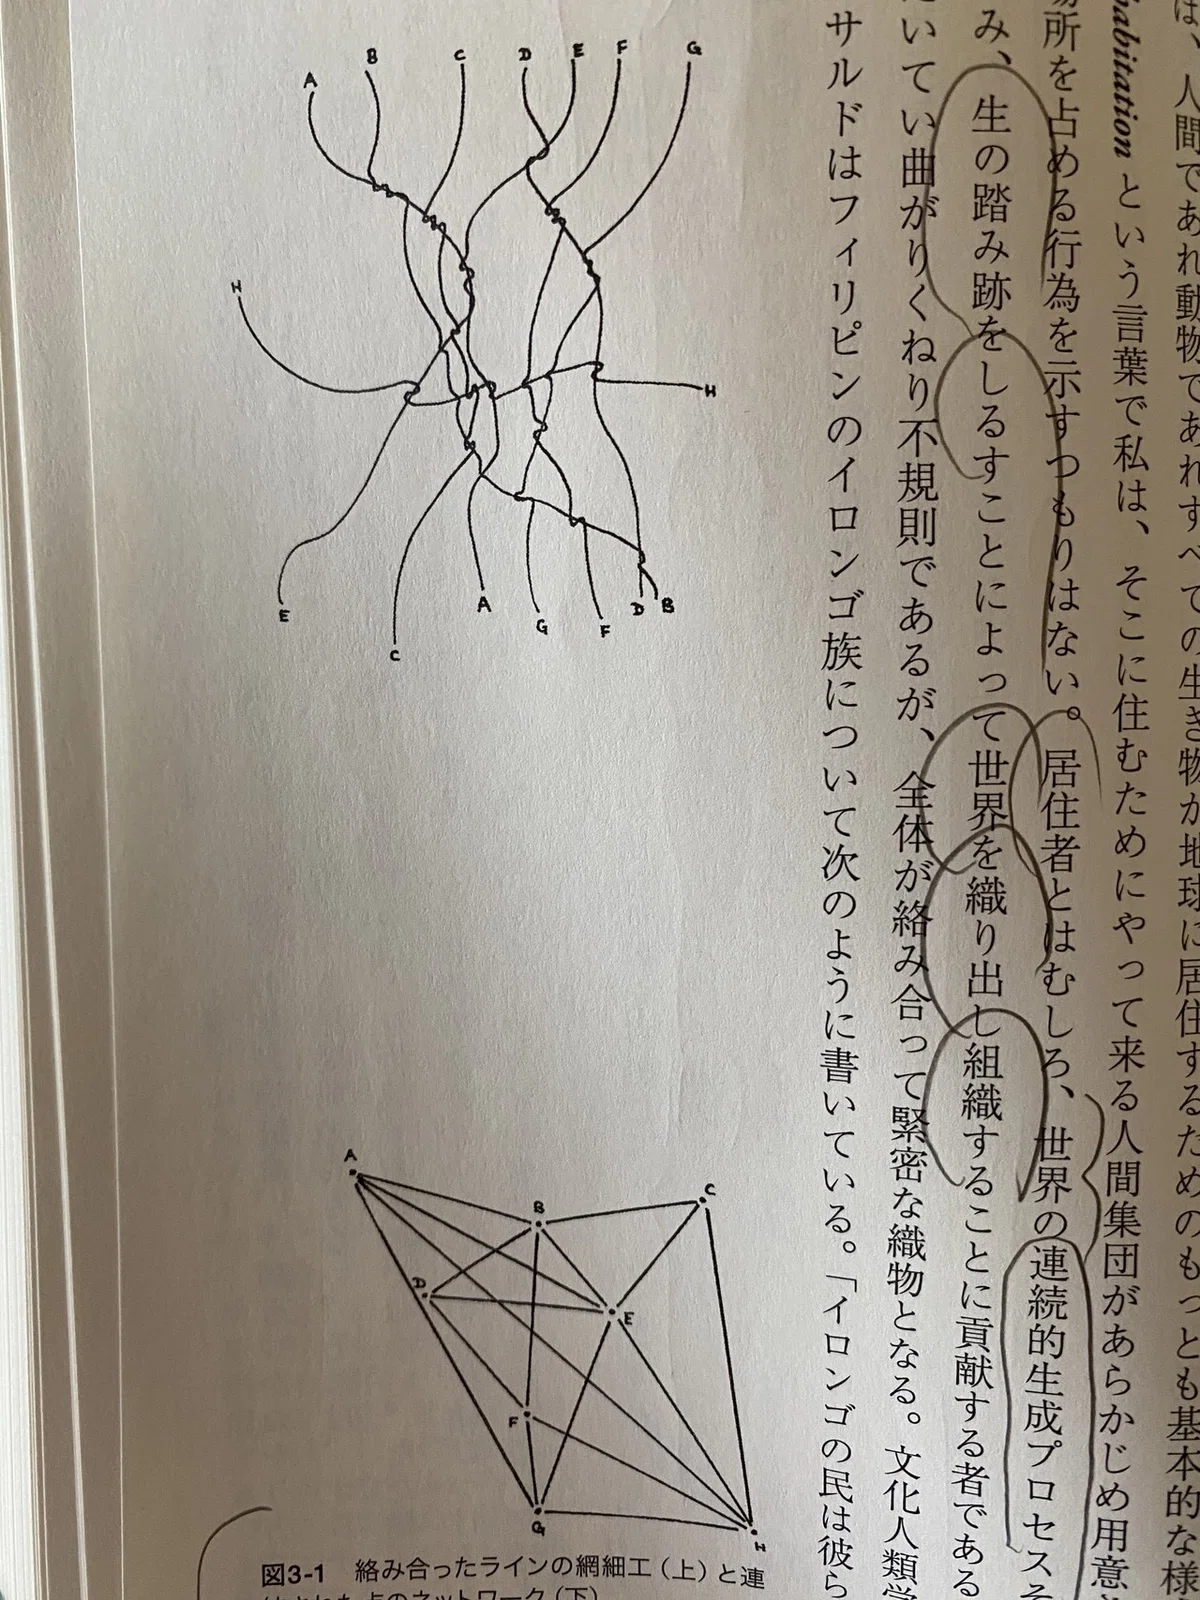 は、人間であれ動物であれすべての生き物が地球に居住するためのもっとも基本的な様
habitation という言葉で私は、そこに住むためにやって来る人間集団があらかじめ用意
場所を占める行為を示すつもりはない。居住者とはむしろ、世界の連続的生成プロセスそ
み、生の踏み跡をしるすことによって世界を織り出し組織することに貢献する者である
いてい曲がりくねり不規則であるが、全体が絡み合って緊密な織物となる。文化人類学
サルドはフィリピンのイロンゴ族について次のように書いている。「イロンゴの民は彼ら
A B C D E F G
H H
E C A G F D B
A
B C
D E
F
G H
図3-1　絡み合ったラインの網細工（上）と連
点のネットワーク（下）